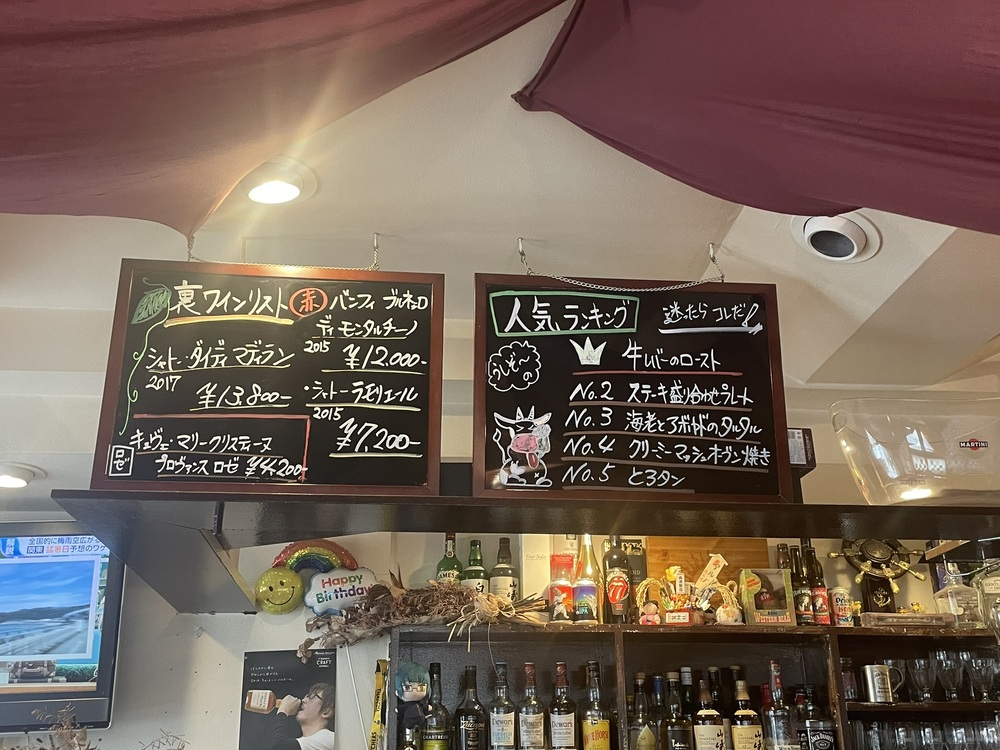 裏ワインリスト
赤
バンフィ ブルネッロ
ディ モンタルチーノ
2015
¥12,000-
シャトー・ダイディ マディラン
2017
¥13,800-
・シャトーラモリエール
2015
¥7,200-
ロゼ
キュヴェ・マリークリスティーヌ
プロヴァンス ロゼ ¥4,200-
人気ランキング
迷ったら コレだ!
うしぞ〜の
牛レバーのロースト
No.2 ステーキ盛り合わせプレート
No.3 海老とアボカドのタルタル
No.4 クリーミーマッシュオーヴン焼き
No.5 とろタン
MARTINI
全国的に梅雨空広が
関東 猛暑日予想のワケ
Happy
Birthday
JAMES
CRAFT
CHARTREUSE
Dewar's
Dewar's
Dewar's
WESTERN BEAR
JACK DANIEL'S